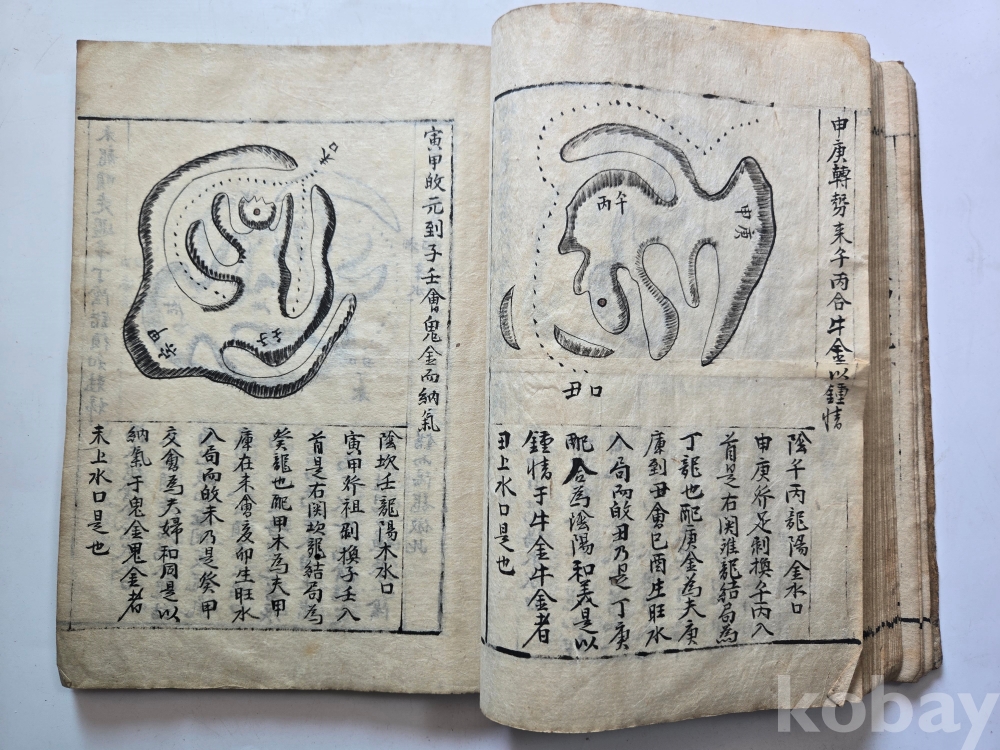 申庚轉勢来午丙合牛金以鍾情
午丙
申庚
丑口
陰午丙龍陽金水口
申庚祚足剝換午丙入
首是右関離龍結局為
丁龍也配庚金為夫庚
庫到丑會巳酉生旺水
入局而放丑乃是丁庚
配合為陰陽和義是以
鍾情于牛金牛金者
丑上水口是也
寅甲放元到子壬會鬼金而納氣
水口
壬子
寅甲
陰坎壬龍陽木水口
寅甲祚祖剝換子壬入
首是右関坎龍結局為
癸龍也配甲木為夫甲
庫在未會亥卯生旺水
入局而放未乃是癸甲
交會為夫婦和同是以
納氣于鬼金鬼金者
未上水口是也
kobay